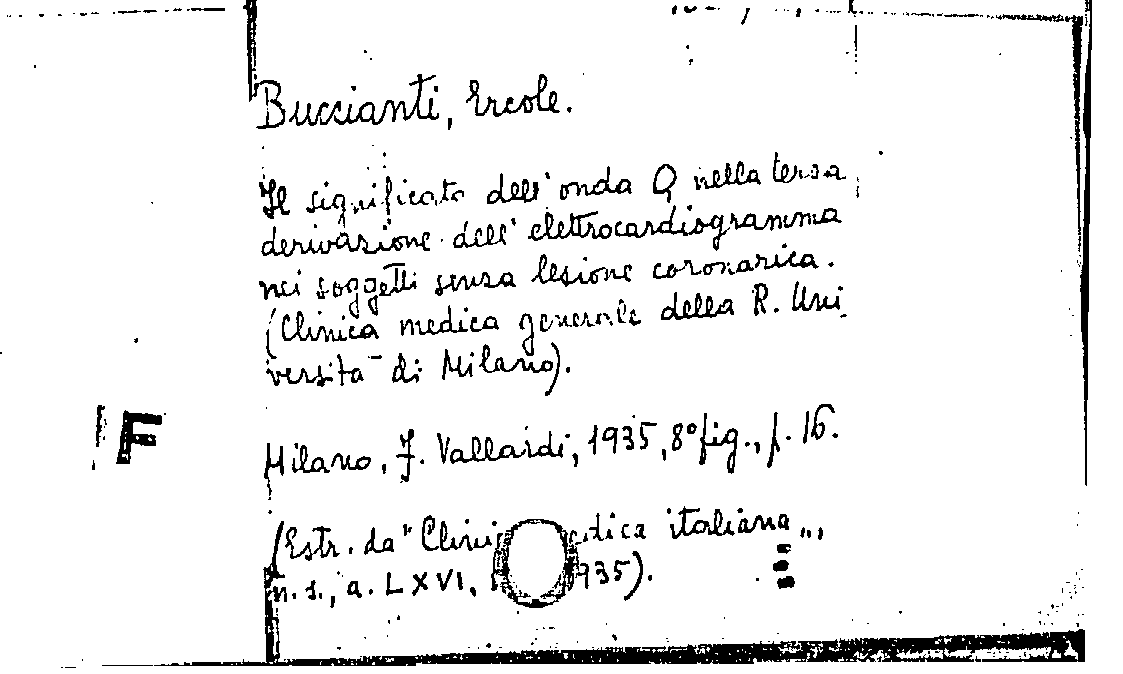 Buccianti, Ercole.
Il significato dell'onda Q nella terza
derivazione dell'elettrocardiogramma
nei soggetti senza lesione coronarica.
(Clinica medica generale della R. Uni
versità di Milano).
F
Milano, F. Vallardi, 1935, 8° fig., p. 16.
(Estr. da "Clini dica italiana",
n. s., a. LXVI, 935).